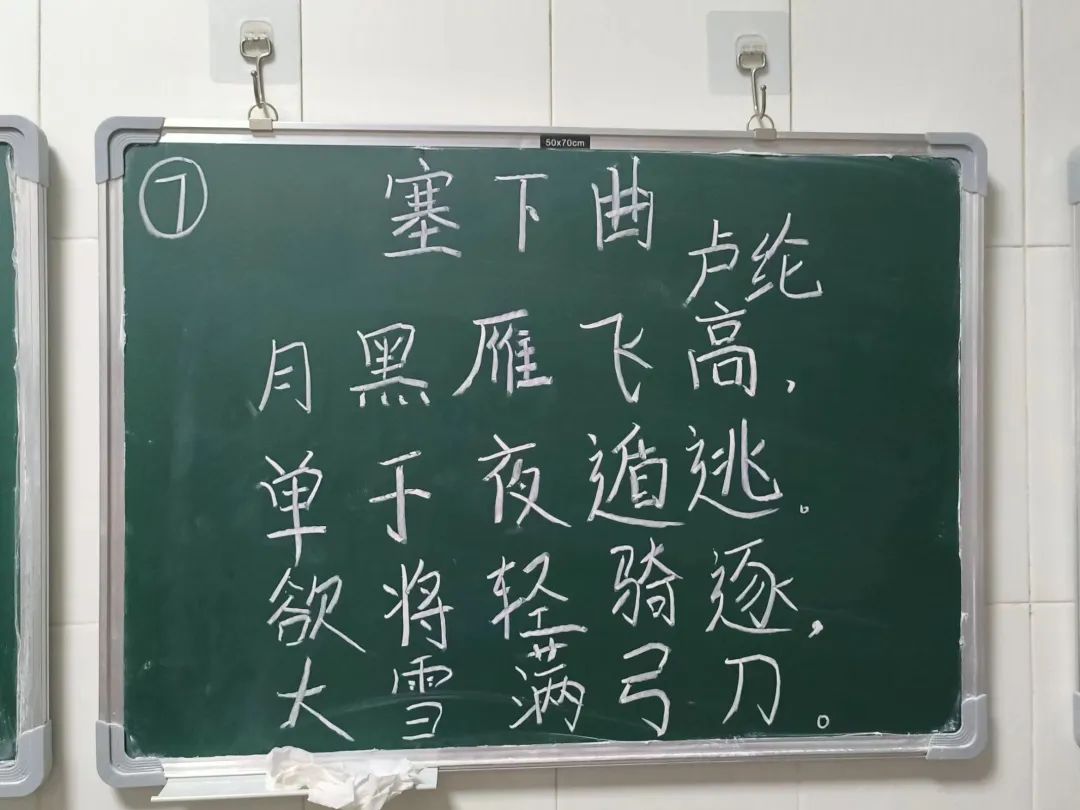 50x70cm
⑦ 塞下曲
卢纶
月黑雁飞高，
单于夜遁逃。
欲将轻骑逐，
大雪满弓刀。